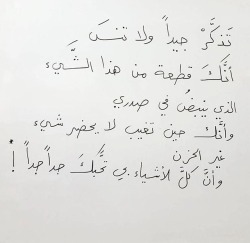 تَذكَّرْ جيداً ولا تنسَ
أنَّكَ قطعة من هذا الشَّيء
الذي ينبضُ في صدري
وأنَّك حين تغيب لا يحضر شيء
غير الحزن
وأنَّ كلَّ الأشياء بي تحُّبكَ جداً جداً !